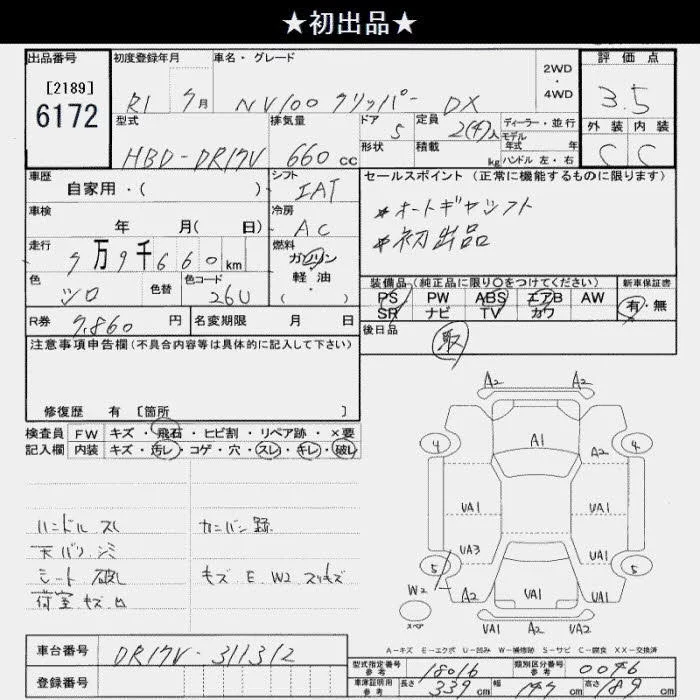 ★初出品★
出品番号 初度登録年月 車名・グレード 2WD・4WD 評価点
[2189]
6172
R1 7月 NV100 クリッパー DX 3.5
型式 排気量 ドア 定員 ディーラー・並行 外装 内装
HBD-DR17V 660cc 5 2(4)人 モデル年式 年 C C
形状 積載 kg ハンドル 左・右
車歴 シフト セールスポイント (正常に機能するものに限ります)
自家用・( ) IAT
*オートギヤシフト
車検 冷房
年 月(日) AC
*初出品
走行 燃料
7万9千660km ガソリン
軽油
・( )
色 色替 色コード
シロ 26U
装備品(純正品に限り○をつけてください) 新車保証書
PS PW ABS エアB AW 有・無
SR ナビ TV カワ
R券 7,860円 名変期限 月 日
後日品 取
注意事項申告欄(不具合内容等は具体的に記入して下さい)
修復歴 有 [箇所 ]
検査員 FW キズ・飛石・ヒビ割・リペア跡・×要
記入欄 内装 キズ・汚レ・コゲ・穴・スレ・キレ・破レ
ハンドル スレ カンバン跡
天バリ シミ
シート 破レ キズ E W2 スリキズ
荷室 キズ 凹
A2 A2
4 A1 4
UA1 UA1
UA3 UA1
5 5
W2 A2 UA1 UA1
スペア
UA1 UA2 A2
A-キズ E-エクボ U-凹み W-補修跡 S-サビ C-腐食 XX-交換済
車台番号 DR17V-311312
登録番号
型式指定番号 参考 18016 類別区分番号 参考 0046
車庫証明用 参考 長さ 339cm 幅 147cm 高さ 189cm